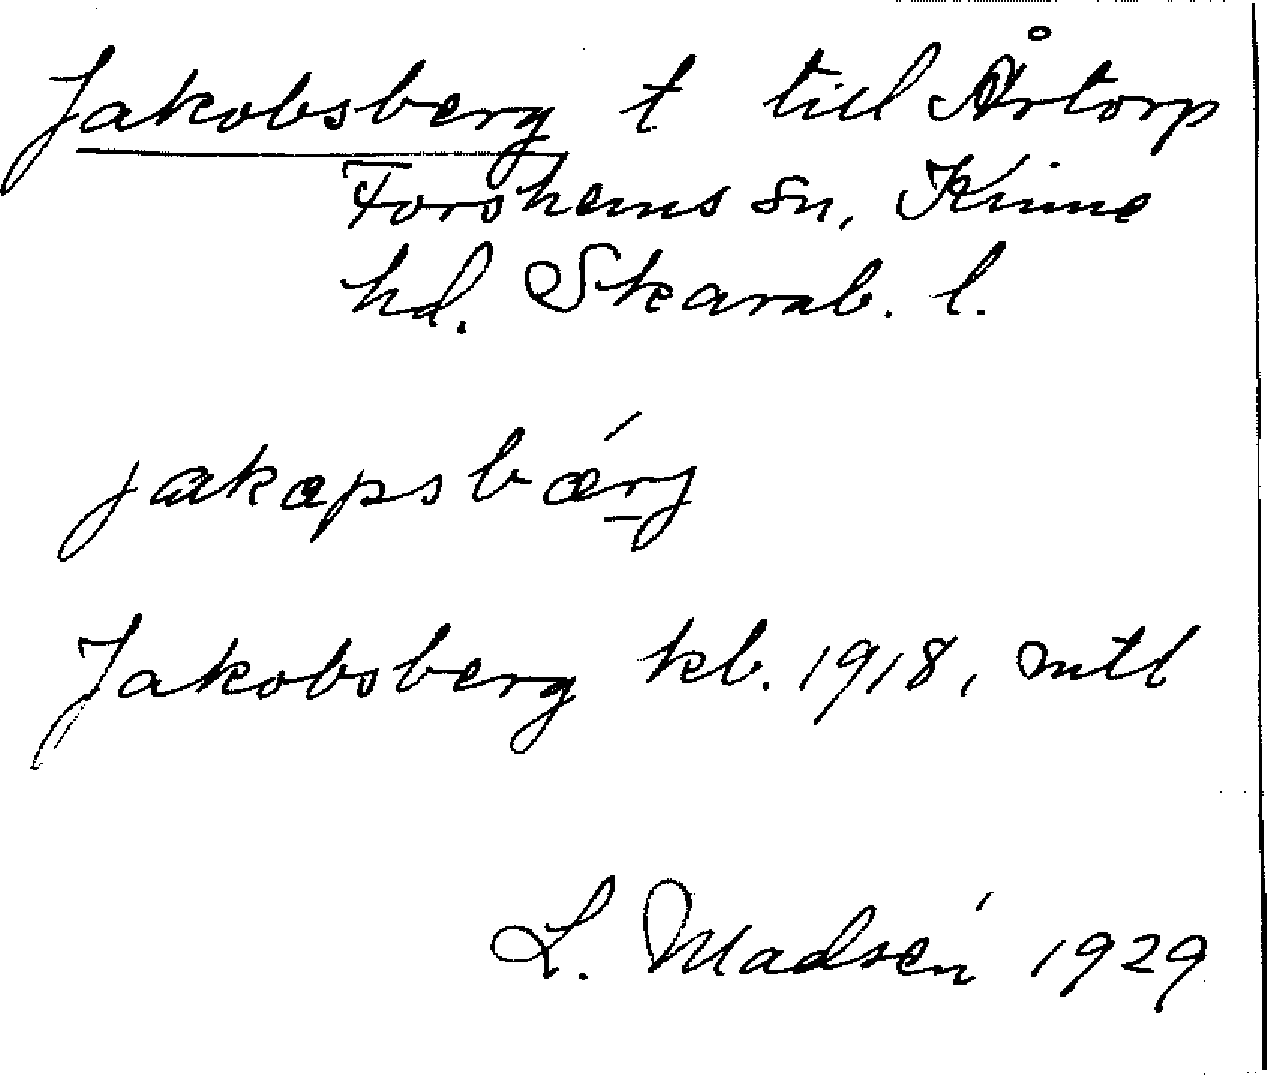 Jakobsberg t till Årtorp
Forshems sn, Kinne
hd. Skarab. l.
jakapsbǽrj
Jakobsberg kb. 1918, mtl
L. Madsén 1929